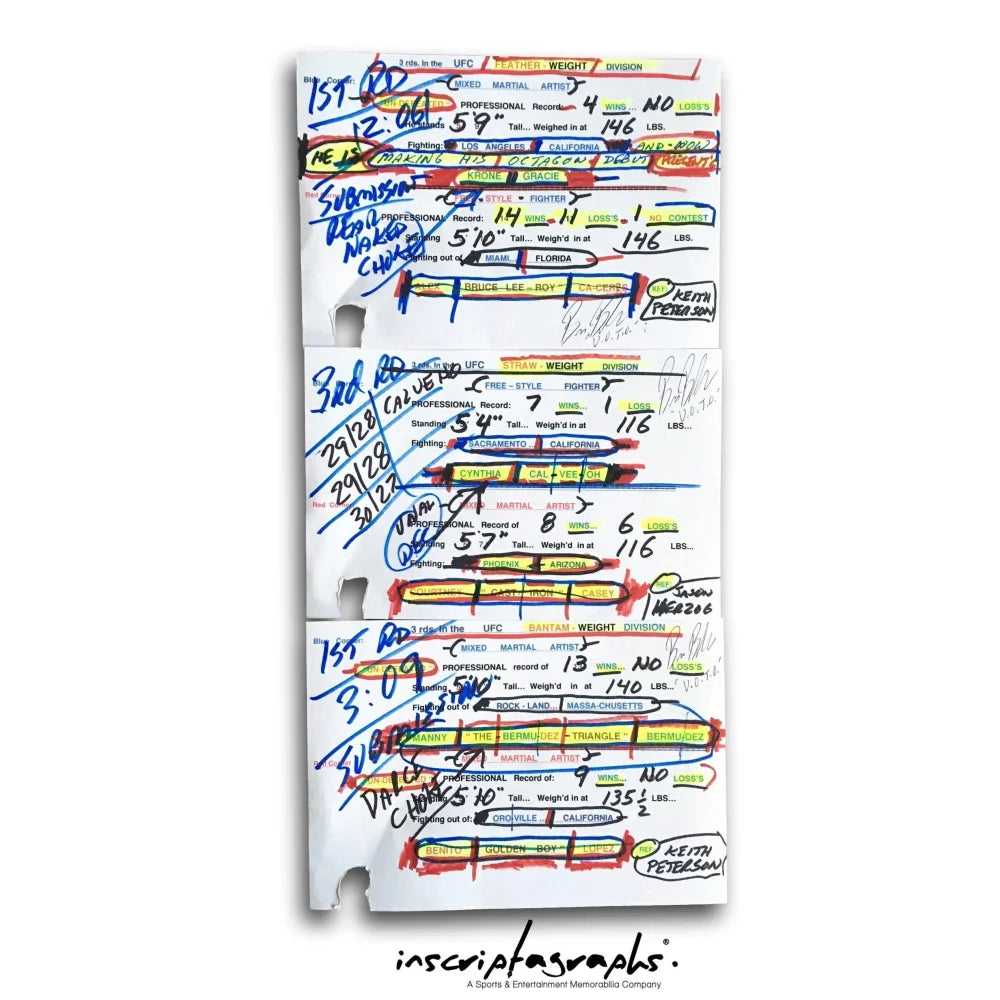 3 rds. In the UFC FEATHER - WEIGHT DIVISION
Blue Corner:
1ST RD
(MIXED MARTIAL ARTIST)
"UN-DEFEATED" PROFESSIONAL Record: 4 WINS... NO LOSS'S
2:06
He stands 5'9" Tall... Weighed in at 146 LBS.
Fighting: LOS ANGELES CALIFORNIA AND-NOW
HE IS MAKING HIS OCTAGON DEBUT PRESENT'G
KRONE GRACIE
SUBMISSION
REAR NAKED CHOKE
Red Corner:
(FREE - STYLE - FIGHTER)
PROFESSIONAL Record: 14 WINS - 11 LOSS'S - 1 NO CONTEST
Standing 5'10" Tall... Weigh'd in at 146 LBS.
Fighting out of MIAMI... FLORIDA
ALEX BRUCE LEE - ROY CA-CERES
REF: KEITH PETERSON
"V.O.T.O."
3 rds. In the UFC STRAW - WEIGHT DIVISION
3rd RD
Blue
(FREE - STYLE FIGHTER)
CALVEÑO
PROFESSIONAL Record: 7 WINS... 1 LOSS
29/28
29/28
30/27
Standing 5'4" Tall... Weigh'd in at 116 LBS...
"V.O.T.O."
Fighting: SACRAMENTO... CALIFORNIA
CYNTHIA CAL - VEE - OH
Red Corner
(MIXED MARTIAL ARTIST)
UNAN DEC
PROFESSIONAL Record of 8 WINS... 6 LOSS'S
Standing 5'7" Tall... Weigh'd in at 116 LBS...
Fighting: PHOENIX ARIZONA
COURTNEY " CAST IRON " CASEY
REF: JASON HERZOG
3 rds. In the UFC BANTAM - WEIGHT DIVISION
Blue Corner:
1ST RD
(MIXED MARTIAL ARTIST)
"UN-DEFEATED" PROFESSIONAL record of 13 WINS... NO LOSS'S
3:09
Standing 5'10" Tall... Weigh'd in at 140 LBS...
"V.O.T.O."
Fighting out of ROCK - LAND... MASSA-CHUSETTS
MANNY "THE - BERMU-DEZ - TRIANGLE" BERMU-DEZ
SUBMISSION
DARCE CHOKE
Red Corner
(MIXED MARTIAL ARTIST)
"UN-DEFEATED" PROFESSIONAL Record of: 9 WINS... NO LOSS'S
Standing 5'10" Tall... Weigh'd in at 135 1/2 LBS...
Fighting out of: ORO-VILLE... CALIFORNIA
BENITO " GOLDEN BOY " LOPEZ
REF KEITH PETERSON
inscriptagraphs®.
A Sports & Entertainment Memorabilia Company